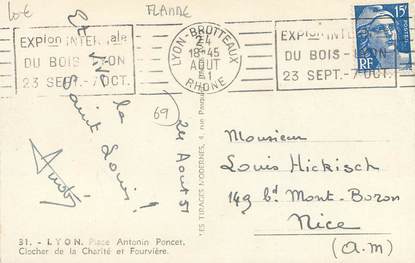 Lot
FLAMME
EXPion INTERnale
DU BOIS - LYON
23 SEPT.-7 OCT.
LYON-BROTTEAUX
24
18-45
AOUT
51
RHONE
EXPion INTER
DU BOIS - LYON
23 SEPT.-7 OCT.
15F
RF
Et vive la
Saint Louis!
André
69
24 Aout 51
LES TIRAGES MODERNES, 4 rue
Monsieur
Louis Hickisch
149 bd Mont-Boron
Nice
(A.M)
31. - LYON. Place Antonin Poncet,
Clocher de la Charité et Fourvière.